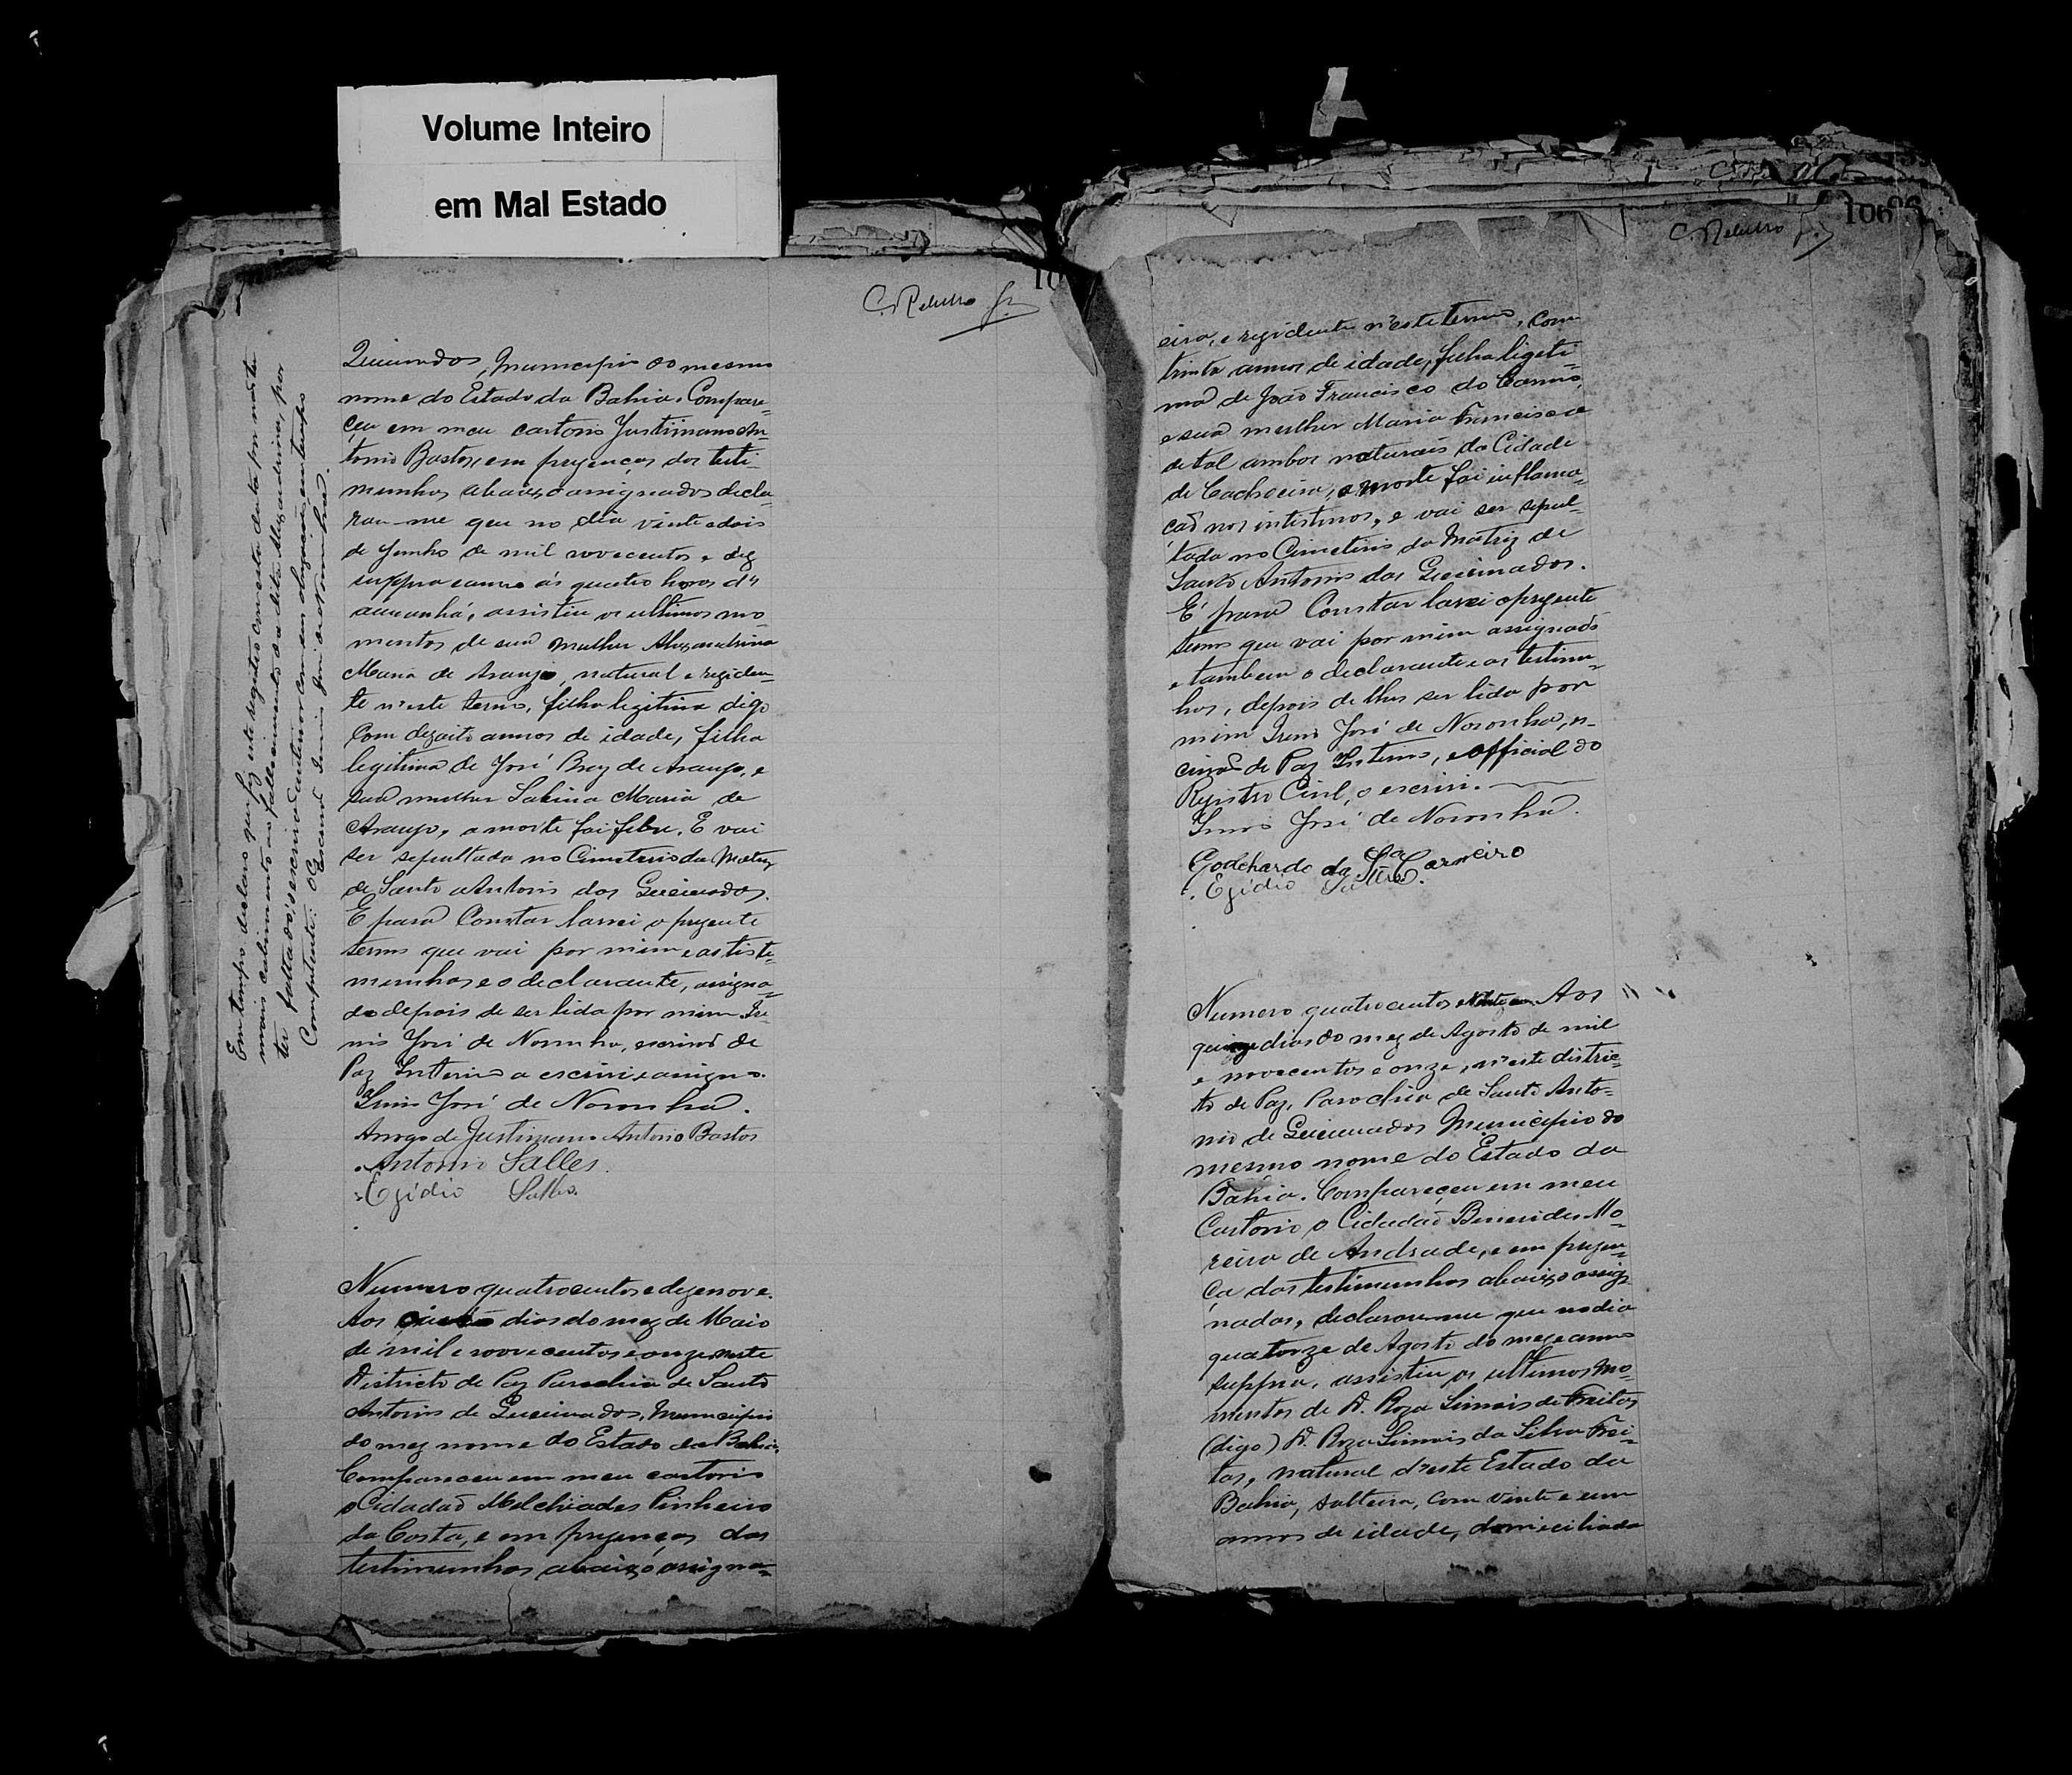 Volume Inteiro
em Mal Estado
10
Em tempo declaro que fiz este registro com esta data por não ter
mais cabimento ao fallecimento a dita Alexandrina, por
ter faltado o escrivão anterior com sua obrigação em tempo
Competente. O Escrivão Irinio José de Noronha.
Queimados, Municipio do mesmo
nome do Estado da Bahia. Compare-
ceu em meu cartorio Justiniano An-
tonio Bastos, em prezenças das teste-
munhas abaixo assignados decla-
rou-me que no dia vinte e dois
de Junho de mil novecentos e dez
suppra anno ás quatro horas d'
amanhá, assistiu os ultimos mo-
mentos de sua mulher Alexandrina
Maria de Araujo, natural e reziden-
te n'este termo, filha legitima digo
Com dezoito annos de idade, filha
legitima de José Braz de Araujo, e
sua mulher Sabina Maria de
Araujo, a morte foi febre. E vai
ser sepultada no Cimeterio da Matriz
de Santo Antonio das Queimados.
E para Constar lavrei o prezente
termo que vai por mim e as teste-
munhas e o declarante, assigna-
do depois de ser lida por mim Iri-
nio José de Noronha, escrivão de
Paz Interino a escrivi e assigno.
Irinio José de Noronha.
Arrogo de Justiniano Antonio Bastos
Antonio Salles.
Egidio Salles.
Numero quatrocentos e dezenove.
Aos dias do mez de Maio
de mil e novecentos e onze neste
Districto de Paz Parochia de Santo
Antonio de Queimados, Municipio
do mez nome do Estado da Bahia.
Compareceu em meu cartorio
o Cidadão Melchiades Pinheiro
da Costa, e em prezenças das
testimunhas abaixo assigna-
106
eira, e rezidente n'este termo, com
trinta annos de idade, filha legiti-
ma de João Francisco do Carmo,
e sua mulher Maria Francisca
de tal ambos naturais da Cidade
de Cachoeira, a morte foi inflama-
cão nos intestinos, e vai ser sepul-
tada no Cimeterio da Matriz de
Santo Antonio das Queimados.
E' para Constar lavrei o prezente
termo que vai por mim assignado
e tambem o declarante e as testimu-
has, depois de lhes ser lida por
mim Irinio José de Noronha, es-
crivão de Paz Interino, e official do
Registro Civil, o escrivi.
Irinio José de Noronha.
Godchardo da Sa. Carneiro
Egidio Salles.
Numero quatrocentos e Aos
quinze dias do mez de Agosto de mil
e novecentos e onze, n'este distric-
to de Paz, Parochia de Santo Anto-
nio de Queimados Municipio do
mesmo nome do Estado da
Bahia. Compareçeu em meu
Cartorio o Cidadão Benevides Mo-
reira de Andrade, e em prezen-
ça das testimunhas abaixo assig-
nadas, declarou-me que no dia
quatorze de Agosto do mez e anno
suppra, assistiu os ultimos mo-
mentos de D. Roza Simois de Freitas
(digo) D. Roza Simois da Silva Frei-
tas, natural d'este Estado da
Bahia, solteira, com vinte e um
annos de idade, domiciliada